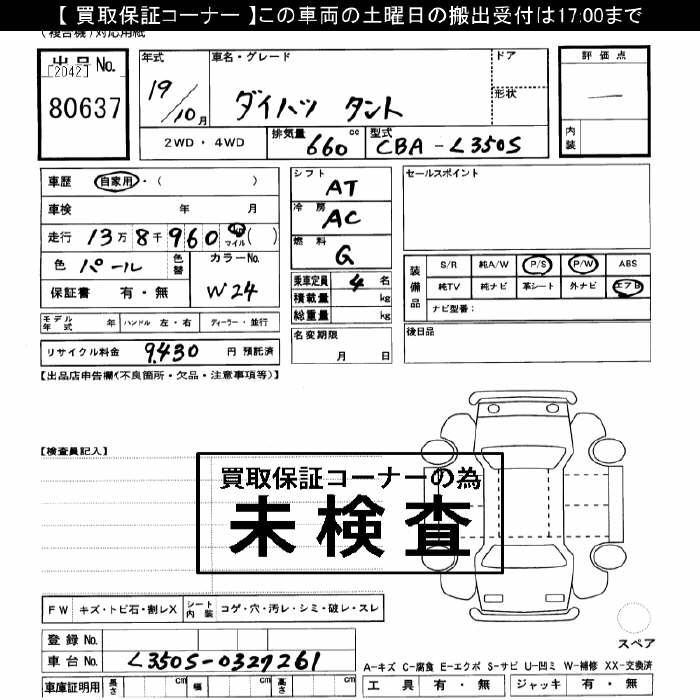 【 買取保証コーナー 】この車両の土曜日の搬出受付は17:00まで
(複合機)対応用紙
出品No.
[2042]
80637
年式
19/10月
車名・グレード
ダイハツ タント
ドア
形状
評価点
―
内装
2WD・4WD
排気量
660 cc
型式
CBA-L350S
車歴 自家用・( )
車検 年 月
走行 13万8千960 km マイル ( )
色 パール
色替
カラーNo.
W24
保証書 有・無
シフト
AT
冷房
AC
燃料
G
乗車定員 4 名
積載量 kg
総重量 kg
名変期限
月 日
セールスポイント
装備品
S/R 純A/W P/S P/W ABS
純TV 純ナビ 革シート 外ナビ エアB
ナビ型番:
後日品
モデル年式 年 ハンドル 左・右 ディーラー・並行
リサイクル料金 9,430 円 預託済
【出品店申告欄(不良箇所・欠品・注意事項等)】
【検査員記入】
買取保証コーナーの為
未検査
FW キズ・トビ石・割レX シート内装 コゲ・穴・汚レ・シミ・破レ・スレ
登録No.
車台No. L350S-0327261
車庫証明用 長さ cm 幅 cm 高さ cm
スペア
A-キズ C-腐食 E-エクボ S-サビ U-凹ミ W-補修 XX-交換済
工具 有・無 ジャッキ 有・無